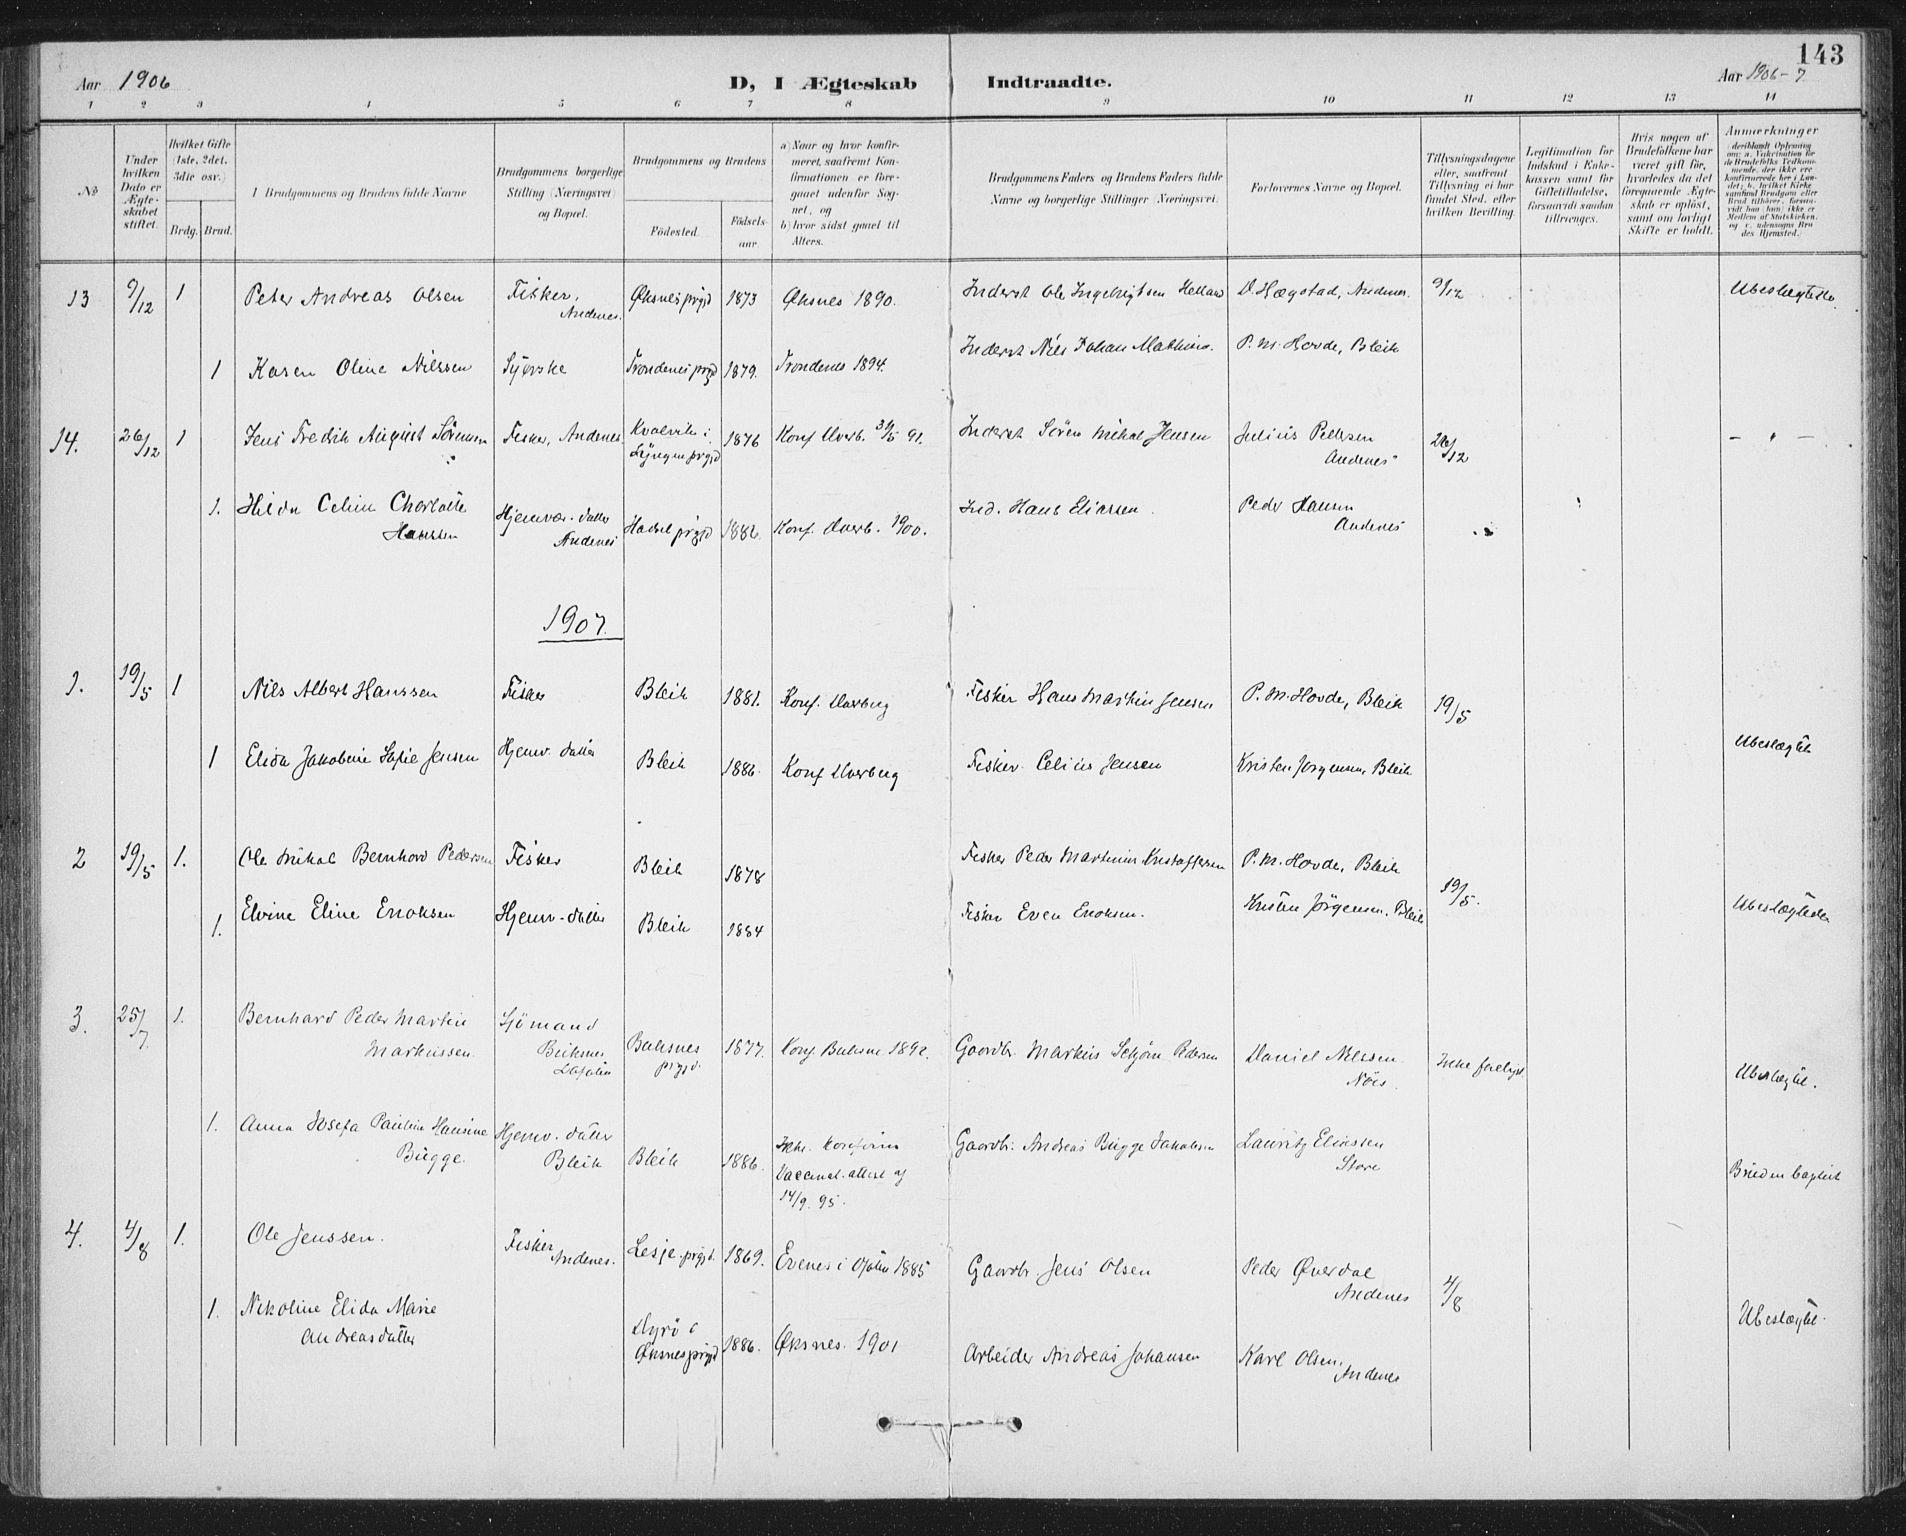 143
Aar 1906
D, I Ægteskab Indtraadte.
Aar 1906-7
1 2 3 4 5 6 7 8 9 10 11 12 13 14
No
Under hvilken Dato er Ægteskabet stiftet.
Hvilket Gifte (1ste, 2det, 3die osv.)
Brdg. Brud.
Brudgommens og Brudens fulde Navne
Brudgommens borgerlige Stilling (Næringsvei) og Bopæl.
Brudgommens og Brudens
Fødested.
Fødselsaar.
a) Naar og hvor konfirmeret, saafremt Konfirmationen er foregaaet udenfor Sognet, og
b) hvor sidst gaael til Alters.
Brudgommens Faders og Brudens Faders fulde Navne og borgerlige Stillinger (Næringsvei).
Forlovernes Navne og Bopæl.
Tillysningsdagene eller, saafremt Tillysning ei har fundet Sted, efter hvilken Bevilling.
Legitimation for Indskud i Enkekassen samt for Giftetilladelse, forsaavidt saadan tiltrænges.
Hvis nogen af Brudefolkene har været gift før, hvorledes da det foregaaende Ægteskab er opløst, samt om lovligt Skifte er holdt.
Anmærkninger
13 9/12 1 Peter Andreas Olsen Fisker, Andenes. Øksnes prgjd 1873 Øksnes 1890. Inderst Ole Ingebrigtsen Helland D. Hægstad, Andenes. 9/12 Ubeslægtede
1 Karen Oline Nilssen Syerske Trondenes prgjd 1879. Trondenes 1894. Inderst Nils Johan Mathias. P. M. Hovde, Bleik
14. 26/12 1 Jens Fredik August Sörensen Fisker, Andenes. Kvalvik i Lyngen prgjd 1876 Konf. Dverb. 91. Inderst Sören Mikal Jensen Julius Pedersen Andenes 26/12 - " -
1. Hilda Celine Charlotte Hanssen Hjemv. datter Andenes Hadsel prgjd 1882. Konf. Dverb. 1900. Ind. Hans Eliassen. Peder Hansen Andenes
1907.
1. 19/5 1 Nils Albert Hanssen Fisker Bleik 1881. Konf. Dverberg Fisker Hans Martin Jensen P. M. Hovde, Bleik 19/5
1 Elida Jakobine Sofie Jensen Hjemv. datter Bleik 1886. Konf Dverberg Fisker Celius Jensen Kristen Jörgensen, Bleik Ubeslægtet
2 19/5 1. Ole Mikal Bernhard Pedersen Fisker Bleik 1878 Fisker Peder Martinus Kristoffersen P. M. Hovde, Bleik 19/5.
1. Elvine Eline Enoksen Hjemv-datter Bleik 1884 Fisker Even Enoksen. Kristen Jörgensen, Bleik Ubeslægtede
3. 25/7 1. Bernhard Peder Martin Markussen. Sjömand Buksnes Lofoten Buksnes prgjd. 1877. Konf. Buksnes 1892. Gaardbr. Markus Schjøn Pedersen Daniel Nilssen Nöis. Ikke forelyst Ubeslægtet.
1. Anna Josefa Pauline Hansine Bugge. Hjemv. datter Bleik Bleik 1886. Ikke konfirm Vaccinat. attest af 14/9. 95. Gaardbr. Andreas Bugge Jakobsen Lauritz Eliassen Stave Bruden baptist
4. 4/8 1. Ole Jenssen. Fisker Andenes. Lesje prgjd. 1869. Evenes i Ofoten 1885 Gaardbr. Jens Olsen Peder Överdal Andenes 4/8
1. Nikoline Elida Marie Andreasdatter Dyrö i Øksnes prgjd 1886. Øksnes. 1901 Arbeider Andreas Johansen Karl Olsen, Andenes Ubeslægtet.